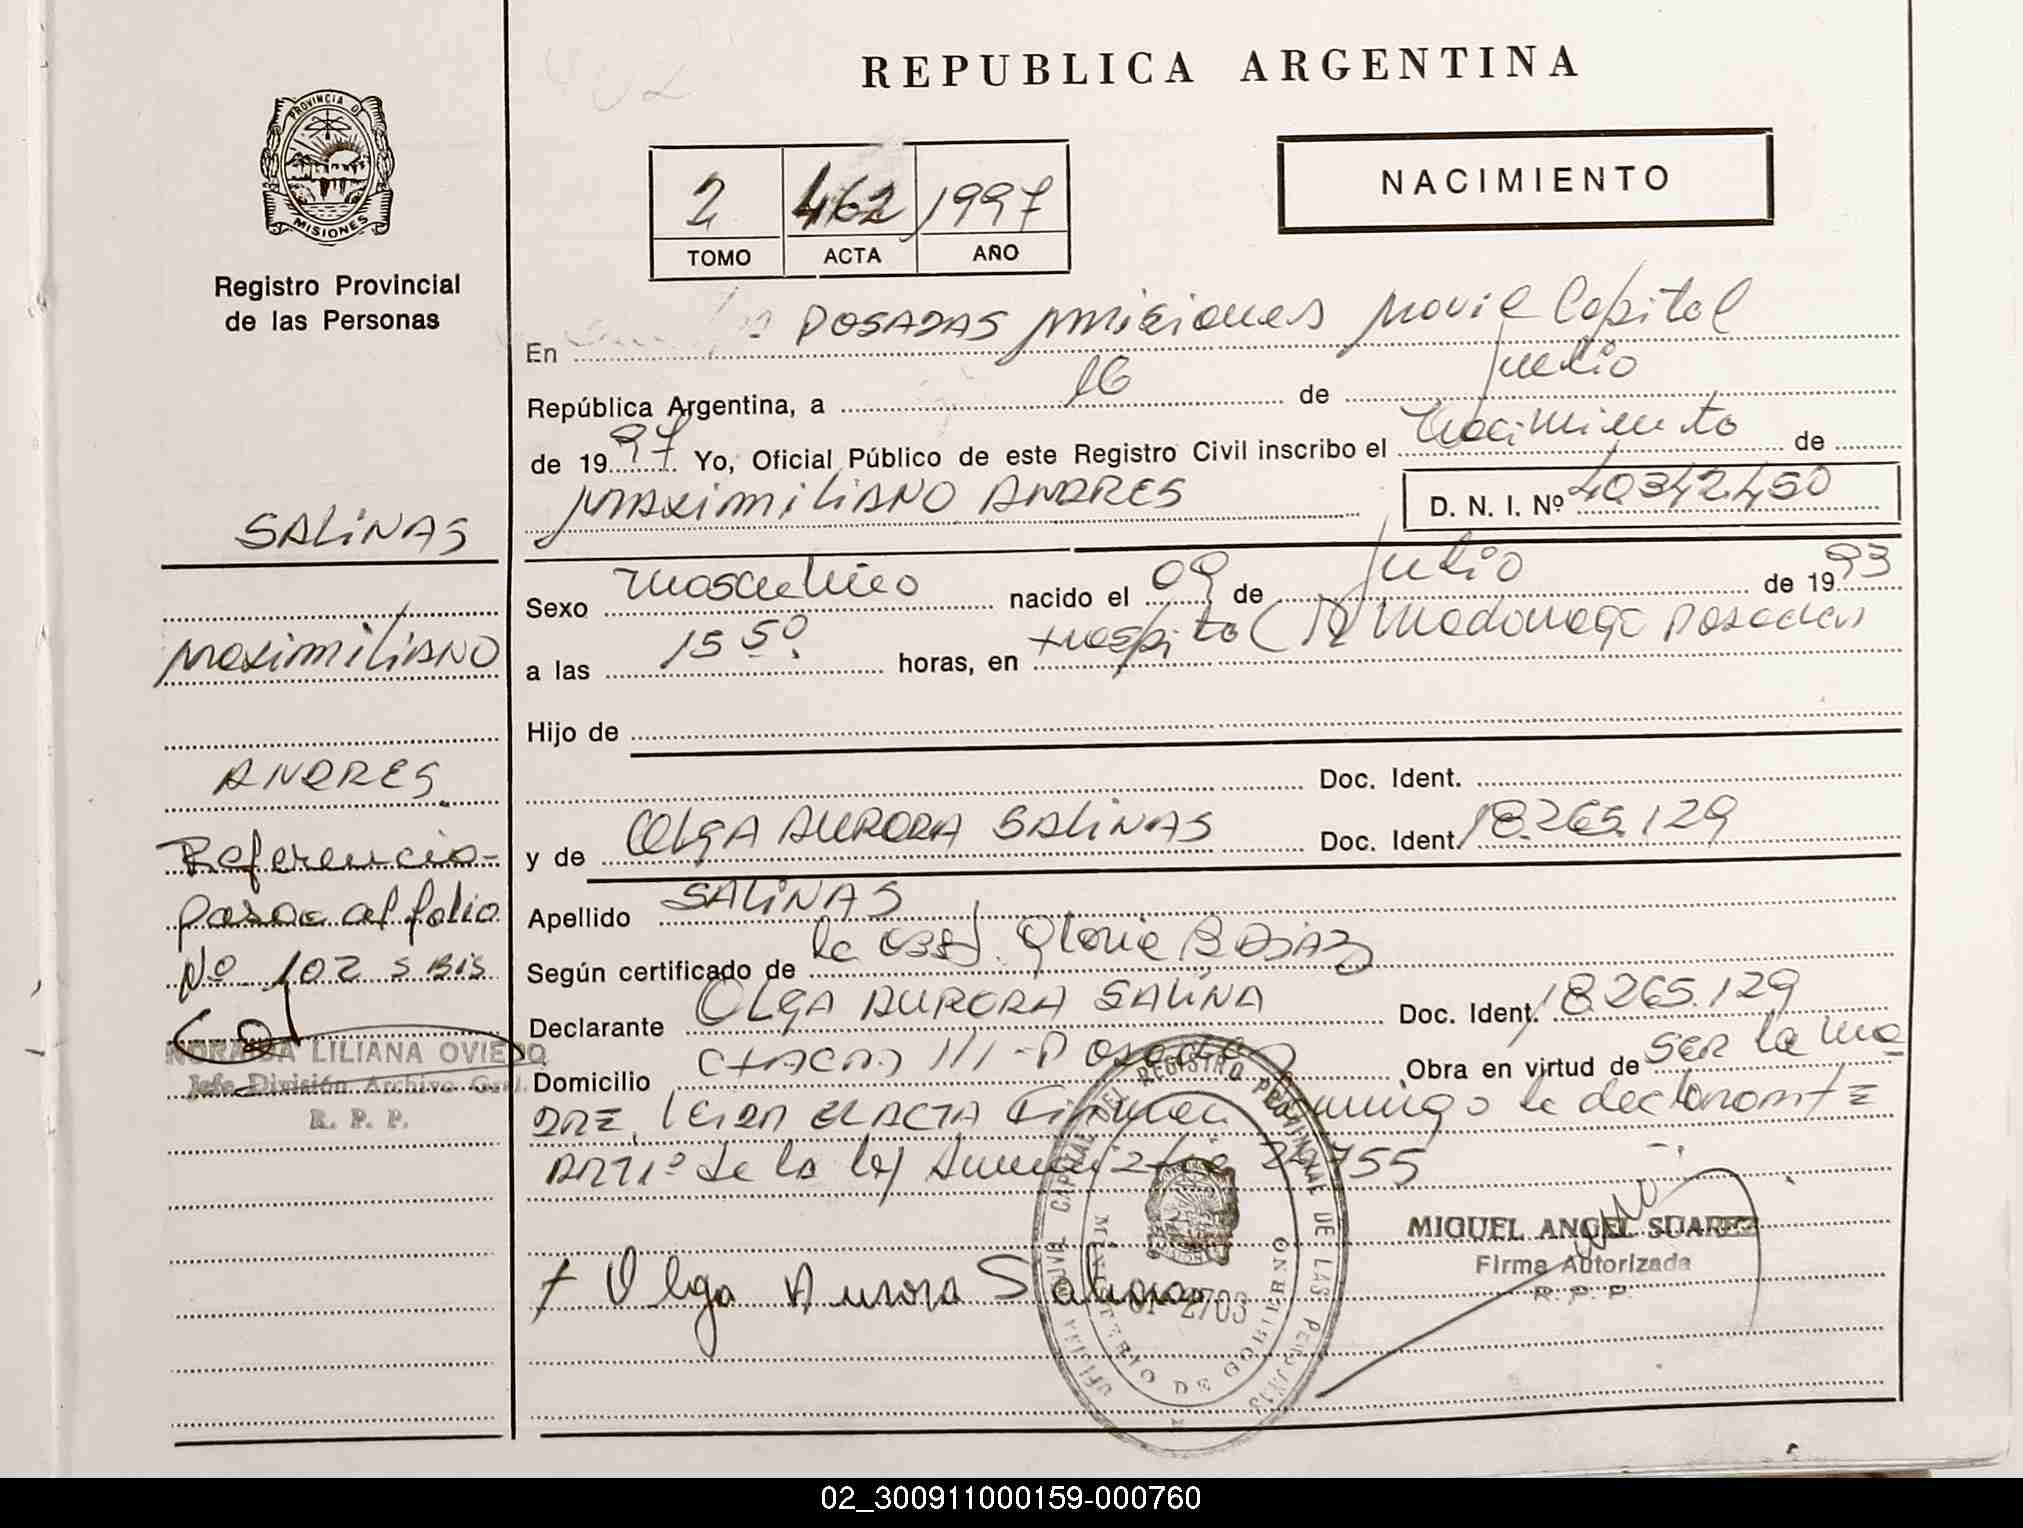 REPUBLICA ARGENTINA
PROVINCIA DE
MISIONES
Registro Provincial
de las Personas
2 462 1997
TOMO ACTA AÑO
NACIMIENTO
En POSADAS misiones movil Capital
República Argentina, a 16 de julio
de 1997 Yo, Oficial Público de este Registro Civil inscribo el Nacimiento de
MAXIMILIANO ANDRES D. N. I. Nº 40342.450
Sexo masculino nacido el 09 de julio de 1993
a las 15 50 horas, en Hospital R Madariaga Posadas
Hijo de
Doc. Ident.
y de OLGA AURORA SALINAS Doc. Ident. 18.265.129
Apellido SALINAS
Según certificado de la obst. Gloria B DIAZ
Declarante OLGA AURORA SALINA Doc. Ident. 18.265.129
Domicilio CHACRA 111 - Posadas Obra en virtud de SER la ma
DRE, leida EL ACTA firman conmigo la declarante
ART 1º de la ley 24755
+ Olga Aurora Salinas
MIGUEL ANGEL SUAREZ
Firma Autorizada
R. P. P.
REGISTRO PROVINCIAL DE LAS PERSONAS
MINISTERIO DE GOBIERNO
2703
SALINAS
MAXIMILIANO
ANDRES
Referencia-
pasa al folio
Nº 102 s BIS
LILIANA OVIEDO
Jefe División Archivo Gral.
R. P. P.
02_300911000159-000760